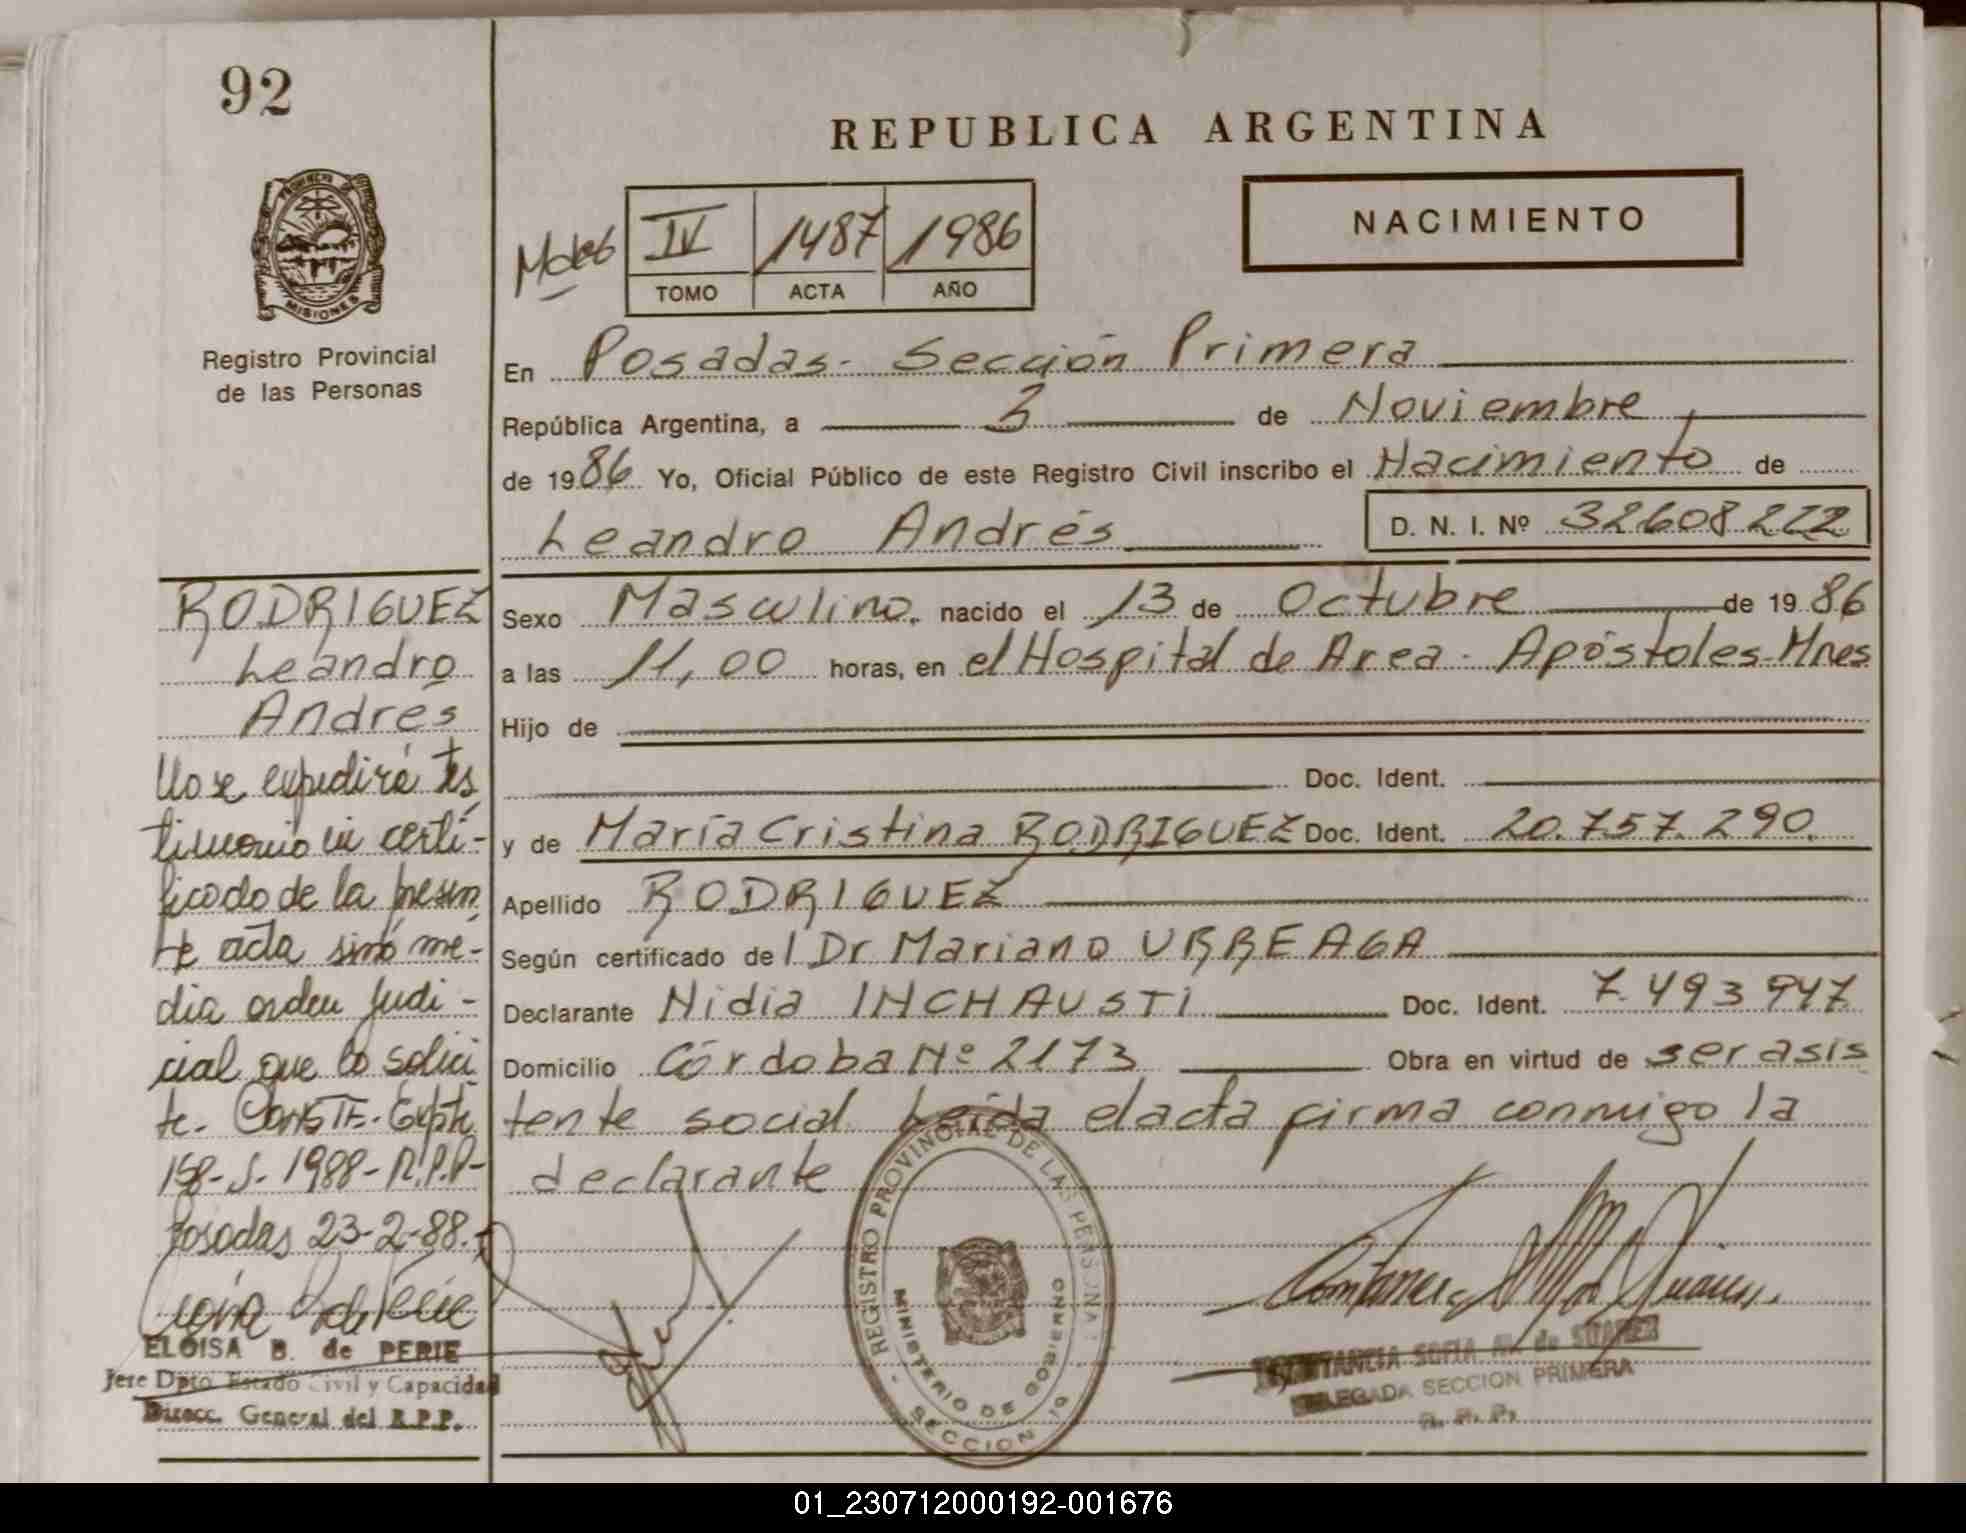 92
REPUBLICA ARGENTINA
PROVINCIA DE
MISIONES
Registro Provincial
de las Personas
NACIMIENTO
IV 1487 1986
TOMO ACTA AÑO
En Posadas - Sección Primera
República Argentina, a 3 de Noviembre
de 1986 Yo, Oficial Público de este Registro Civil inscribo el Nacimiento de
Leandro Andrés D. N. I. Nº 32608222
Sexo Masculino. nacido el 13 de Octubre de 1986
a las 11,00 horas, en el Hospital de Area - Apóstoles - Mnes
Hijo de
Doc. Ident.
y de María Cristina RODRIGUEZ Doc. Ident. 20.757.290.
Apellido RODRIGUEZ
Según certificado del Dr Mariano URREAGA
Declarante Nidia INCHAUSTI Doc. Ident. 7.493947
Domicilio Córdoba Nº 2173 Obra en virtud de ser asis
tente social Leída el acta firma conmigo la
declarante
RODRIGUEZ
Leandro
Andrés
No se expedirá tes
timonio ni certi-
ficado de la presen
te acta sinó me-
dia orden judi-
cial que lo solici
te. CONSTE. Expte
158-S-1988-R.P.P-
Posadas 23-2-88.-
ELOISA B. de PERIE
Jefe Dpto. Estado Civil y Capacidad
Direcc. General del R.P.P.
REGISTRO PROVINCIAL DE LAS PERSONAS
MINISTERIO DE GOBIERNO
SECCION 1a
CONSTANCIA SOFIA M. de SUAREZ
DELEGADA SECCION PRIMERA
R. P. P.
01_230712000192-001676